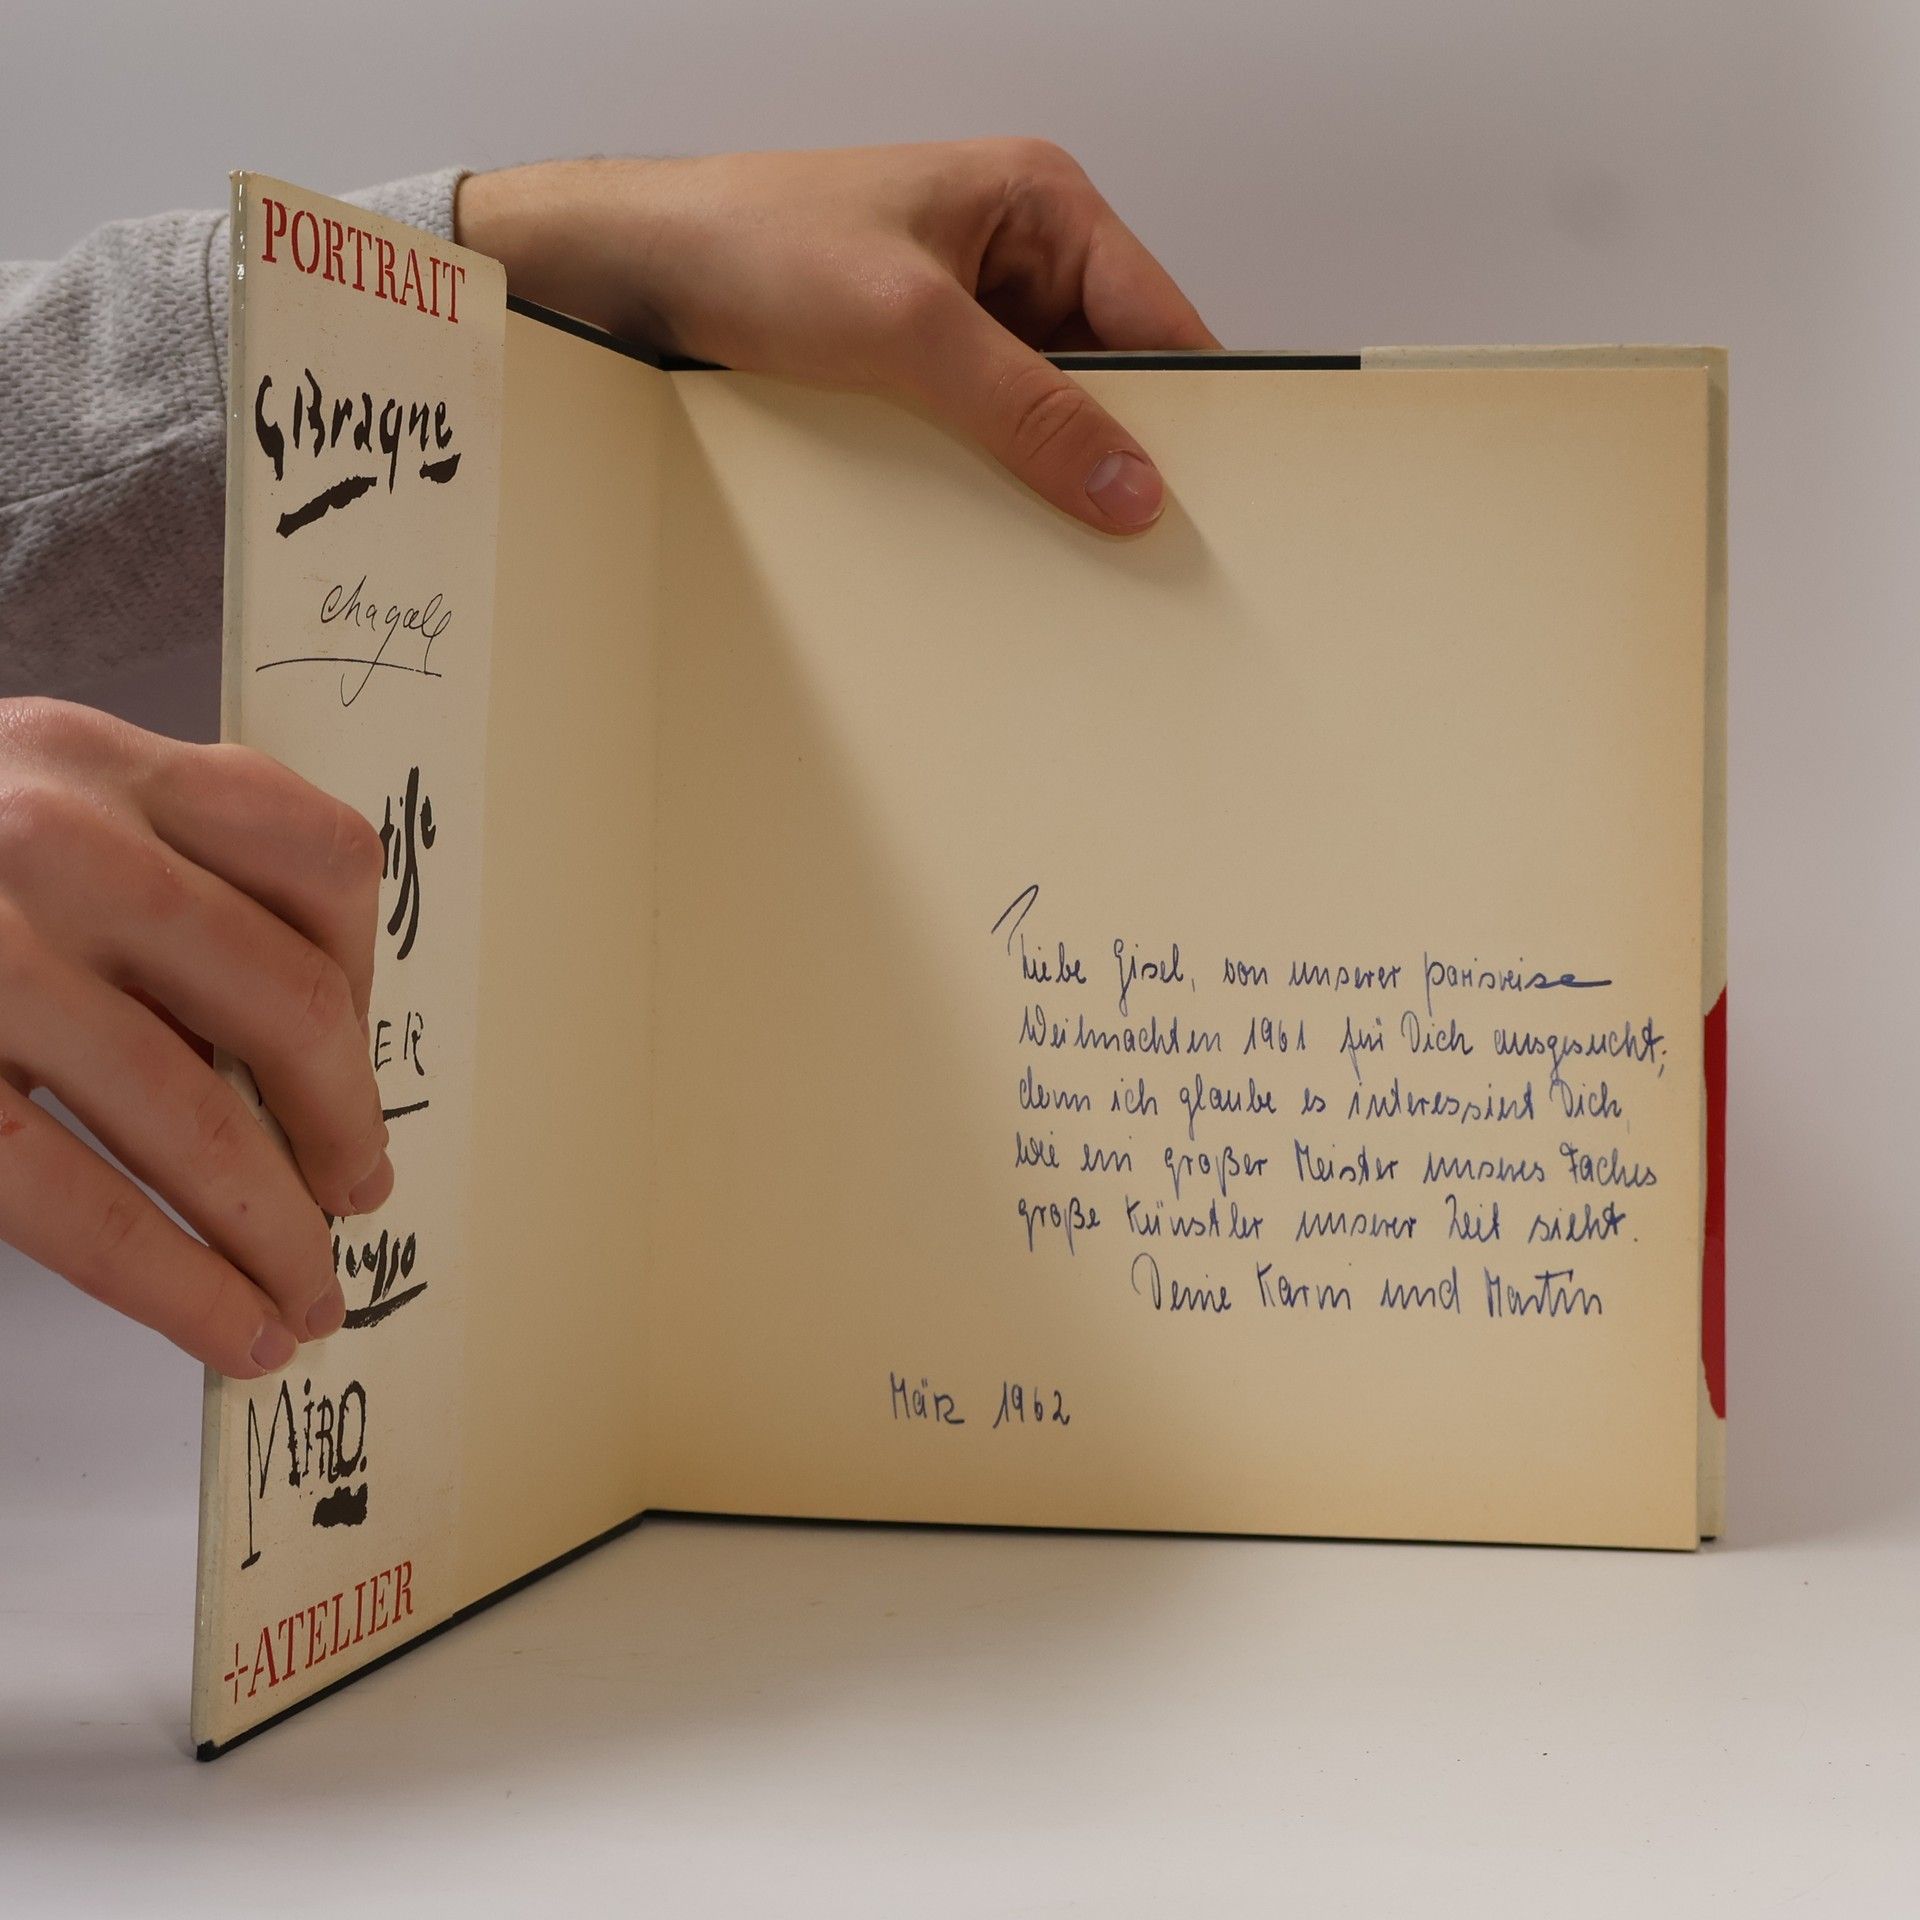 PORTRAIT
G Braque
Chagall
tisse
ER
icasso
MiRO.
+ATELIER
Liebe Gisel, von unserer parisreise
Weihnachten 1961 für Dich ausgesucht;
denn ich glaube es interessiert Dich,
wie ein großer Meister unseres Faches
große Künstler unserer Zeit sieht.
Deine Karin und Martin
März 1962